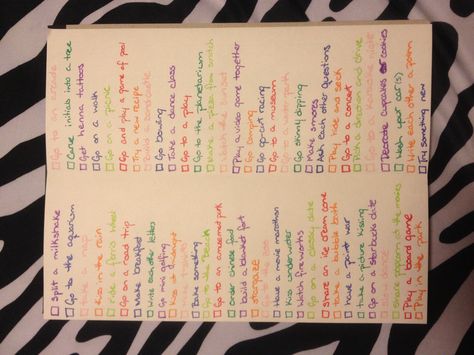 Split a milkshake
Go to the aquarium
Take a nap
Kiss in the rain
Ride a ferris wheel
Go on a road trip
Make breakfast
Write each other letters
Go mini golfing
Kiss at midnight
Bake something
Go to the beach
Go to an amusement park
Order chinese food
build a blanket fort
stargaze
Have a movie marathon
Kiss underwater
Watch fireworks
Go on a classy date
Share an ice cream cone
Take a bubble bath
have a paint war
Take a picture kissing
Go on a Starbucks date
Slow dance
Share popcorn at the movies
Play a board game
Play in the park
Go to an arcade
Carve initials into a tree
Get henna tattoos
Go on a walk
Go on a picnic
Go and play a game of pool
Try a new recipe
Build a sandcastle
Go bowling
Take a dance class
Go to a play
Go to the planetarium
Make a pizza from scratch
Play a video game together
Go camping
Go go-cart racing
Go to a museum
Go to a water park
Go skinny dipping
Make s'mores
Ask each other questions
Play hide and seek
Go to a concert
Pick a direction and drive
Decorate cupcakes or cookies
Wash your car(s)
Write each other a poem
Try something new